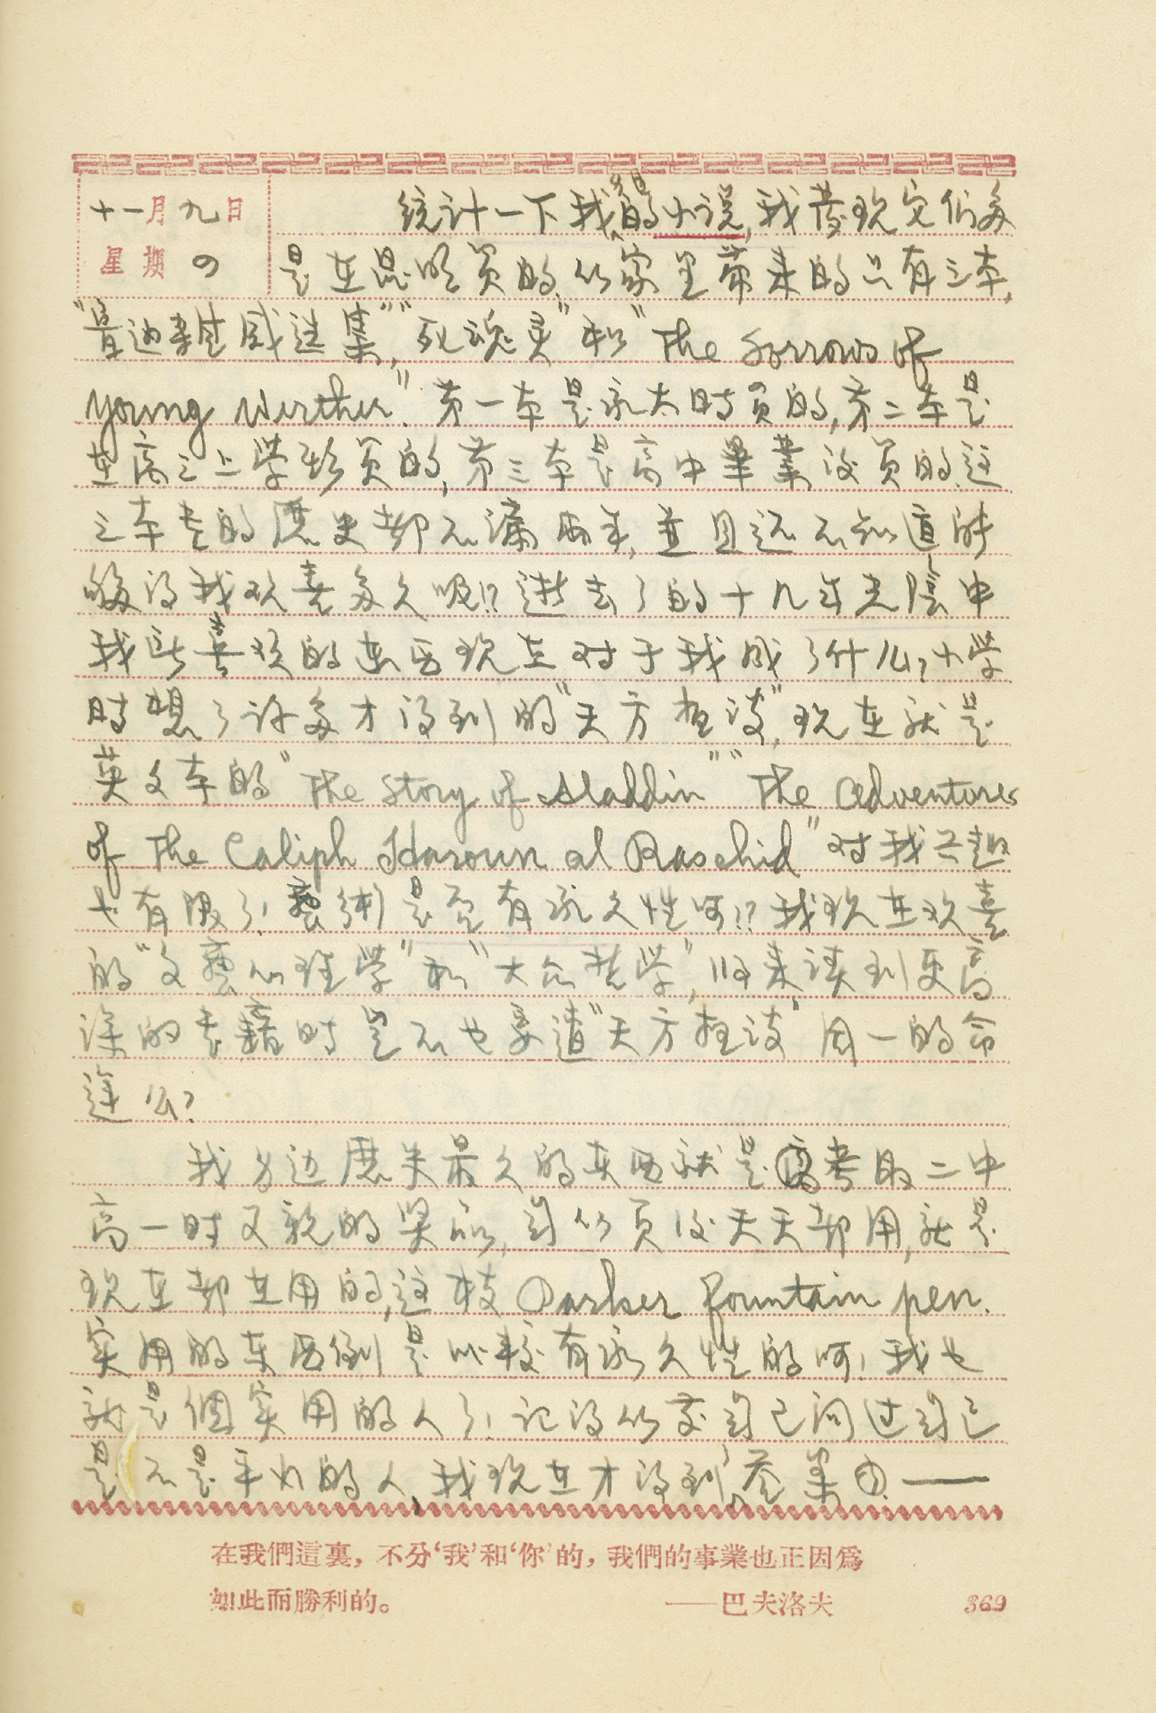 十一月九日
星期四
统计一下我的小说,我发现它们多
是在昆明买的,从家里带来的只有三本,
"鲁迅杂感选集","死魂灵"和"The Sorrows of
Young Werther".第一本是永大时买的,第二本是
在高三上学期买的,第三本是高中畢業后买的,这
三本书的歷史都不满两年,並且还不知道能
够得我欢喜多久呢!?逝去了的十九年光陰中
我所喜欢的东西现在对于我成了什么?小学
时想了许多才得到的"天方夜谈",现在就是
英文本的"The Story of Aladdin""The Adventures
of The Caliph Haroun al Raschid"对我
也有限了!藝術是否有永久性呵!?我现在欢喜
的"文藝心理学"和"大众哲学",归来读到更高
深的書籍时岂不也要遭"天方夜谈"同一的命
运么?
我身边歷来最久的东西就是考取二中
高一时父親的奖品,自从买后天天都用,就是
现在都在用的,这枝Parker Fountain pen.
实用的东西倒是比较有永久性的呵!我也
就是個实用的人了!记得从前自己问过自己
是不是平凡的人,我现在才得到答案:——
在我們這裏,不分'我'和'你'的,我們的事業也正因爲
如此而勝利的。
——巴夫洛夫
369